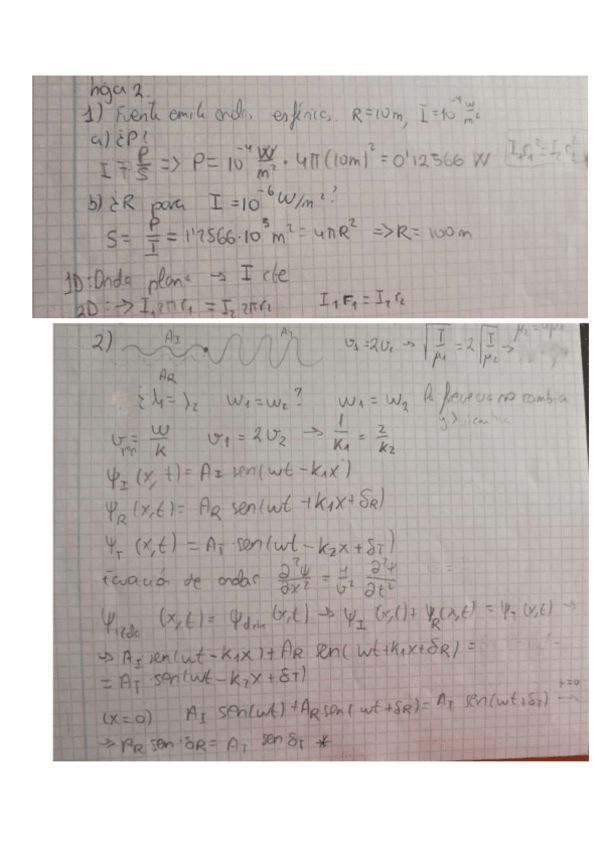 hoja 2.
1) Fuente emite onda esférica. R=10m, I=10⁻⁴ W/m²
a) ¿P?
I = P/S => P= 10⁻⁴ W/m² · 4π(10m)² = 0'12566 W I₁r₁²=I₂r₂²
b) ¿R para I=10⁻⁶ W/m²?
S= P/I = 1'2566·10⁵ m² = 4πR² => R=100m
1D: Onda plana → I cte
2D: → I₁2πr₁ = I₂2πr₂ I₁r₁=I₂r₂
2) A_I A_T v₁=2v₂ → √(T/μ₁) = 2√(T/μ₂) →
A_R
¿λ₁=λ₂ w₁=w₂? w₁=w₂ no cambia
v = w/k v₁=2v₂ → 1/k₁ = 2/k₂
ψ_I(x,t)= A_I sen(wt-k₁x)
ψ_R(x,t)= A_R sen(wt+k₁x+δ_R)
ψ_T(x,t)= A_T·sen(wt-k₂x+δ_T)
Ecuación de ondas ∂²ψ/∂x² = 1/v² ∂²ψ/∂t²
ψ_izda(x,t)= ψ_dcha(x,t) → ψ_I(x,t)+ψ_R(x,t)=ψ_T(x,t) →
→ A_I sen(wt-k₁x)+A_R sen(wt+k₁x+δ_R)=
= A_T·sen(wt-k₂x+δ_T)
(x=0) A_I sen(wt)+A_R sen(wt+δ_R)= A_T sen(wt+δ_T) t=0 →
→ A_R sen δ_R= A_T sen δ_T *